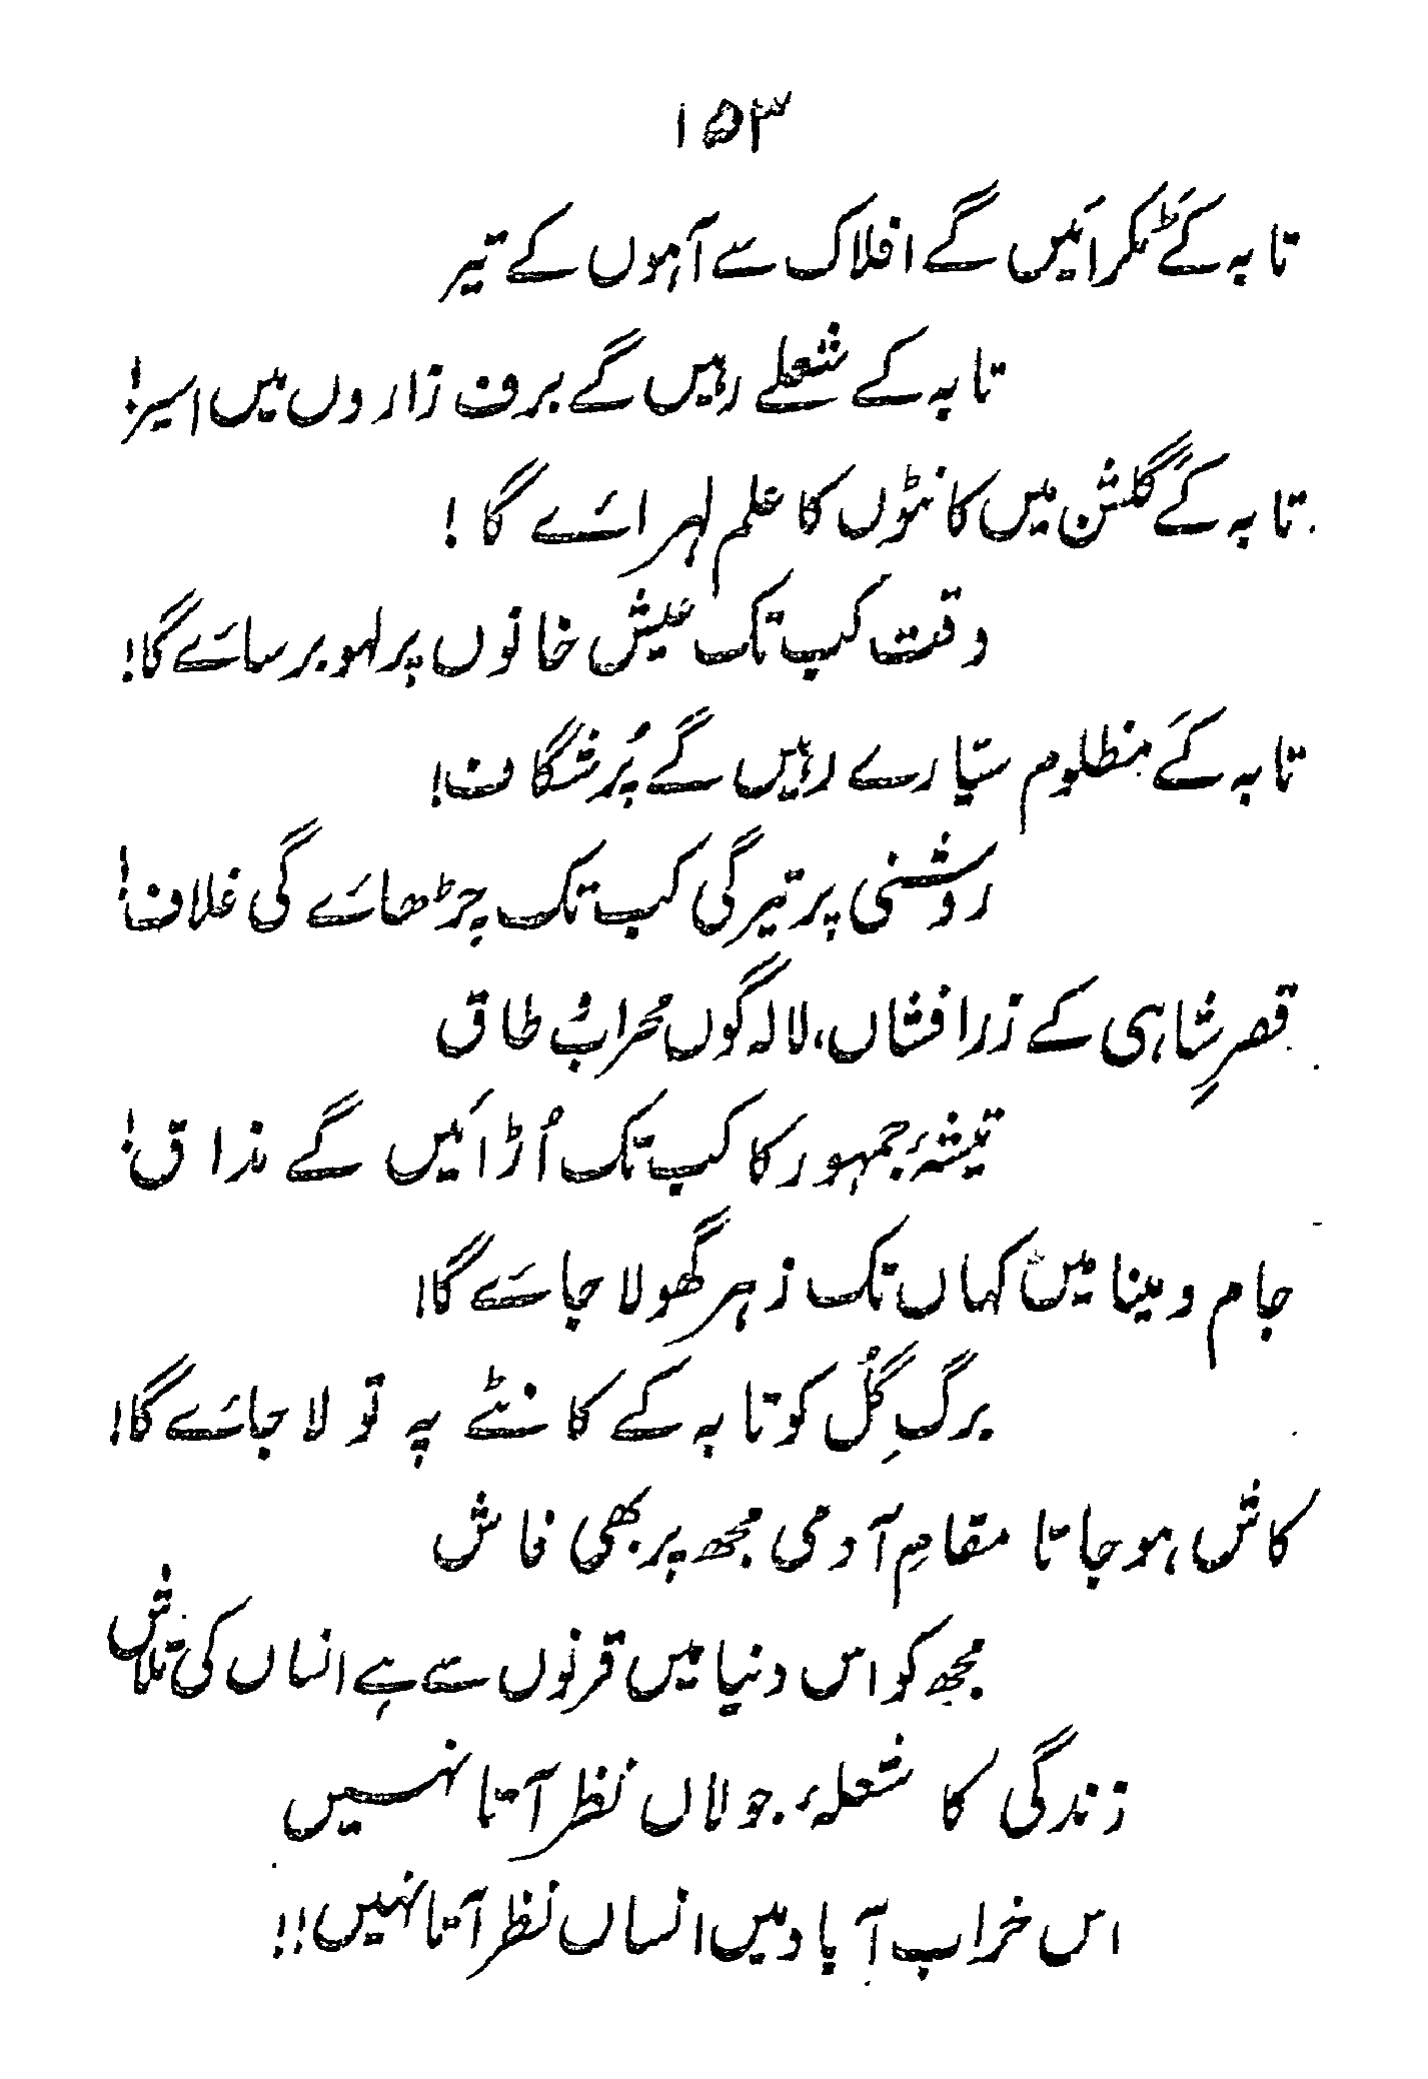 ۱۵۳
تا بہ کَے ٹکرائیں گے افلاک سے آہوں کے تیر
تا بہ کے شعلے رہیں گے برف زاروں میں اسیر!
تا بہ کَے گلشن میں کانٹوں کا علم لہرائے گا !
وقت کب تک عیش خانوں پر لہو برسائے گا!
تا بہ کَے مظلوم سیّارے رہیں گے پُر شگاف!
روشنی پر تیرگی کب تک چڑھائے گی غلاف!
قصرِ شاہی کے زر افشاں، لالہ گوں محراب و طاق
تیشۂ جمہور کا کب تک اُڑائیں گے مذاق!
جام و مینا میں کہاں تک زہر گھولا جائے گا!
برگِ گُل کو تا بہ کے کانٹے پہ تولا جائے گا!
کاش ہو جاتا مقامِ آدمی مجھ پر بھی فاش
مجھ کو اس دنیا میں قرنوں سے ہے انساں کی تلاش
زندگی کا شعلۂ جولاں نظر آتا نہیں
اس خراب آباد میں انساں نظر آتا نہیں!!